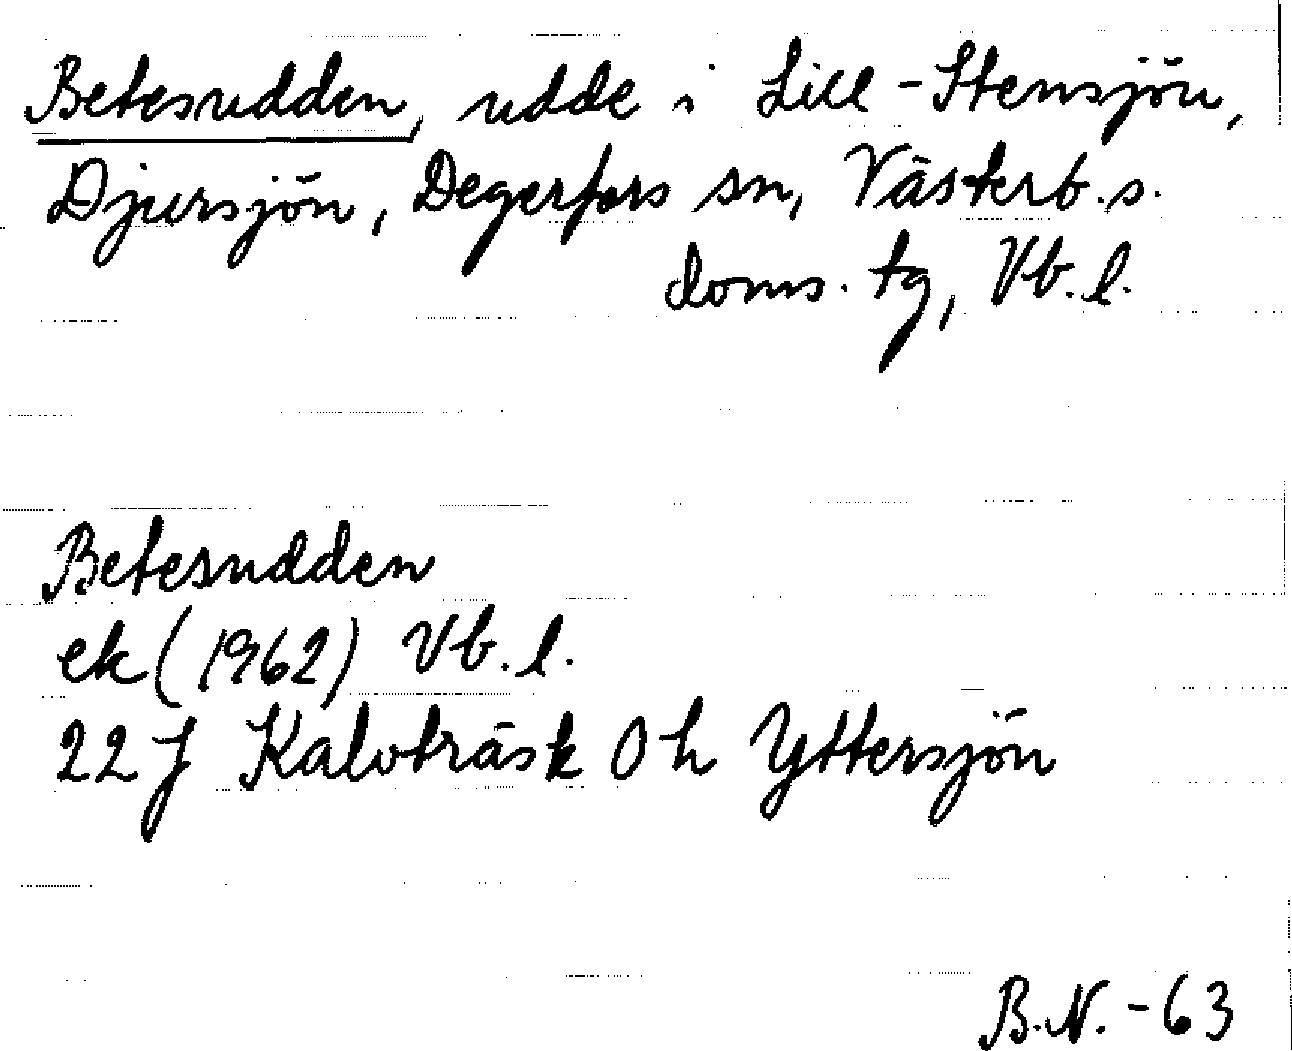 Betesudden, udde i Lill-Stensjön,
Djursjön, Degerfors sn, Västerb. s.
doms. tg, Vb. l.
Betesudden
ek (1962) Vb. l.
22 J Kalvträsk 0 h Yttersjön
B.N. -63